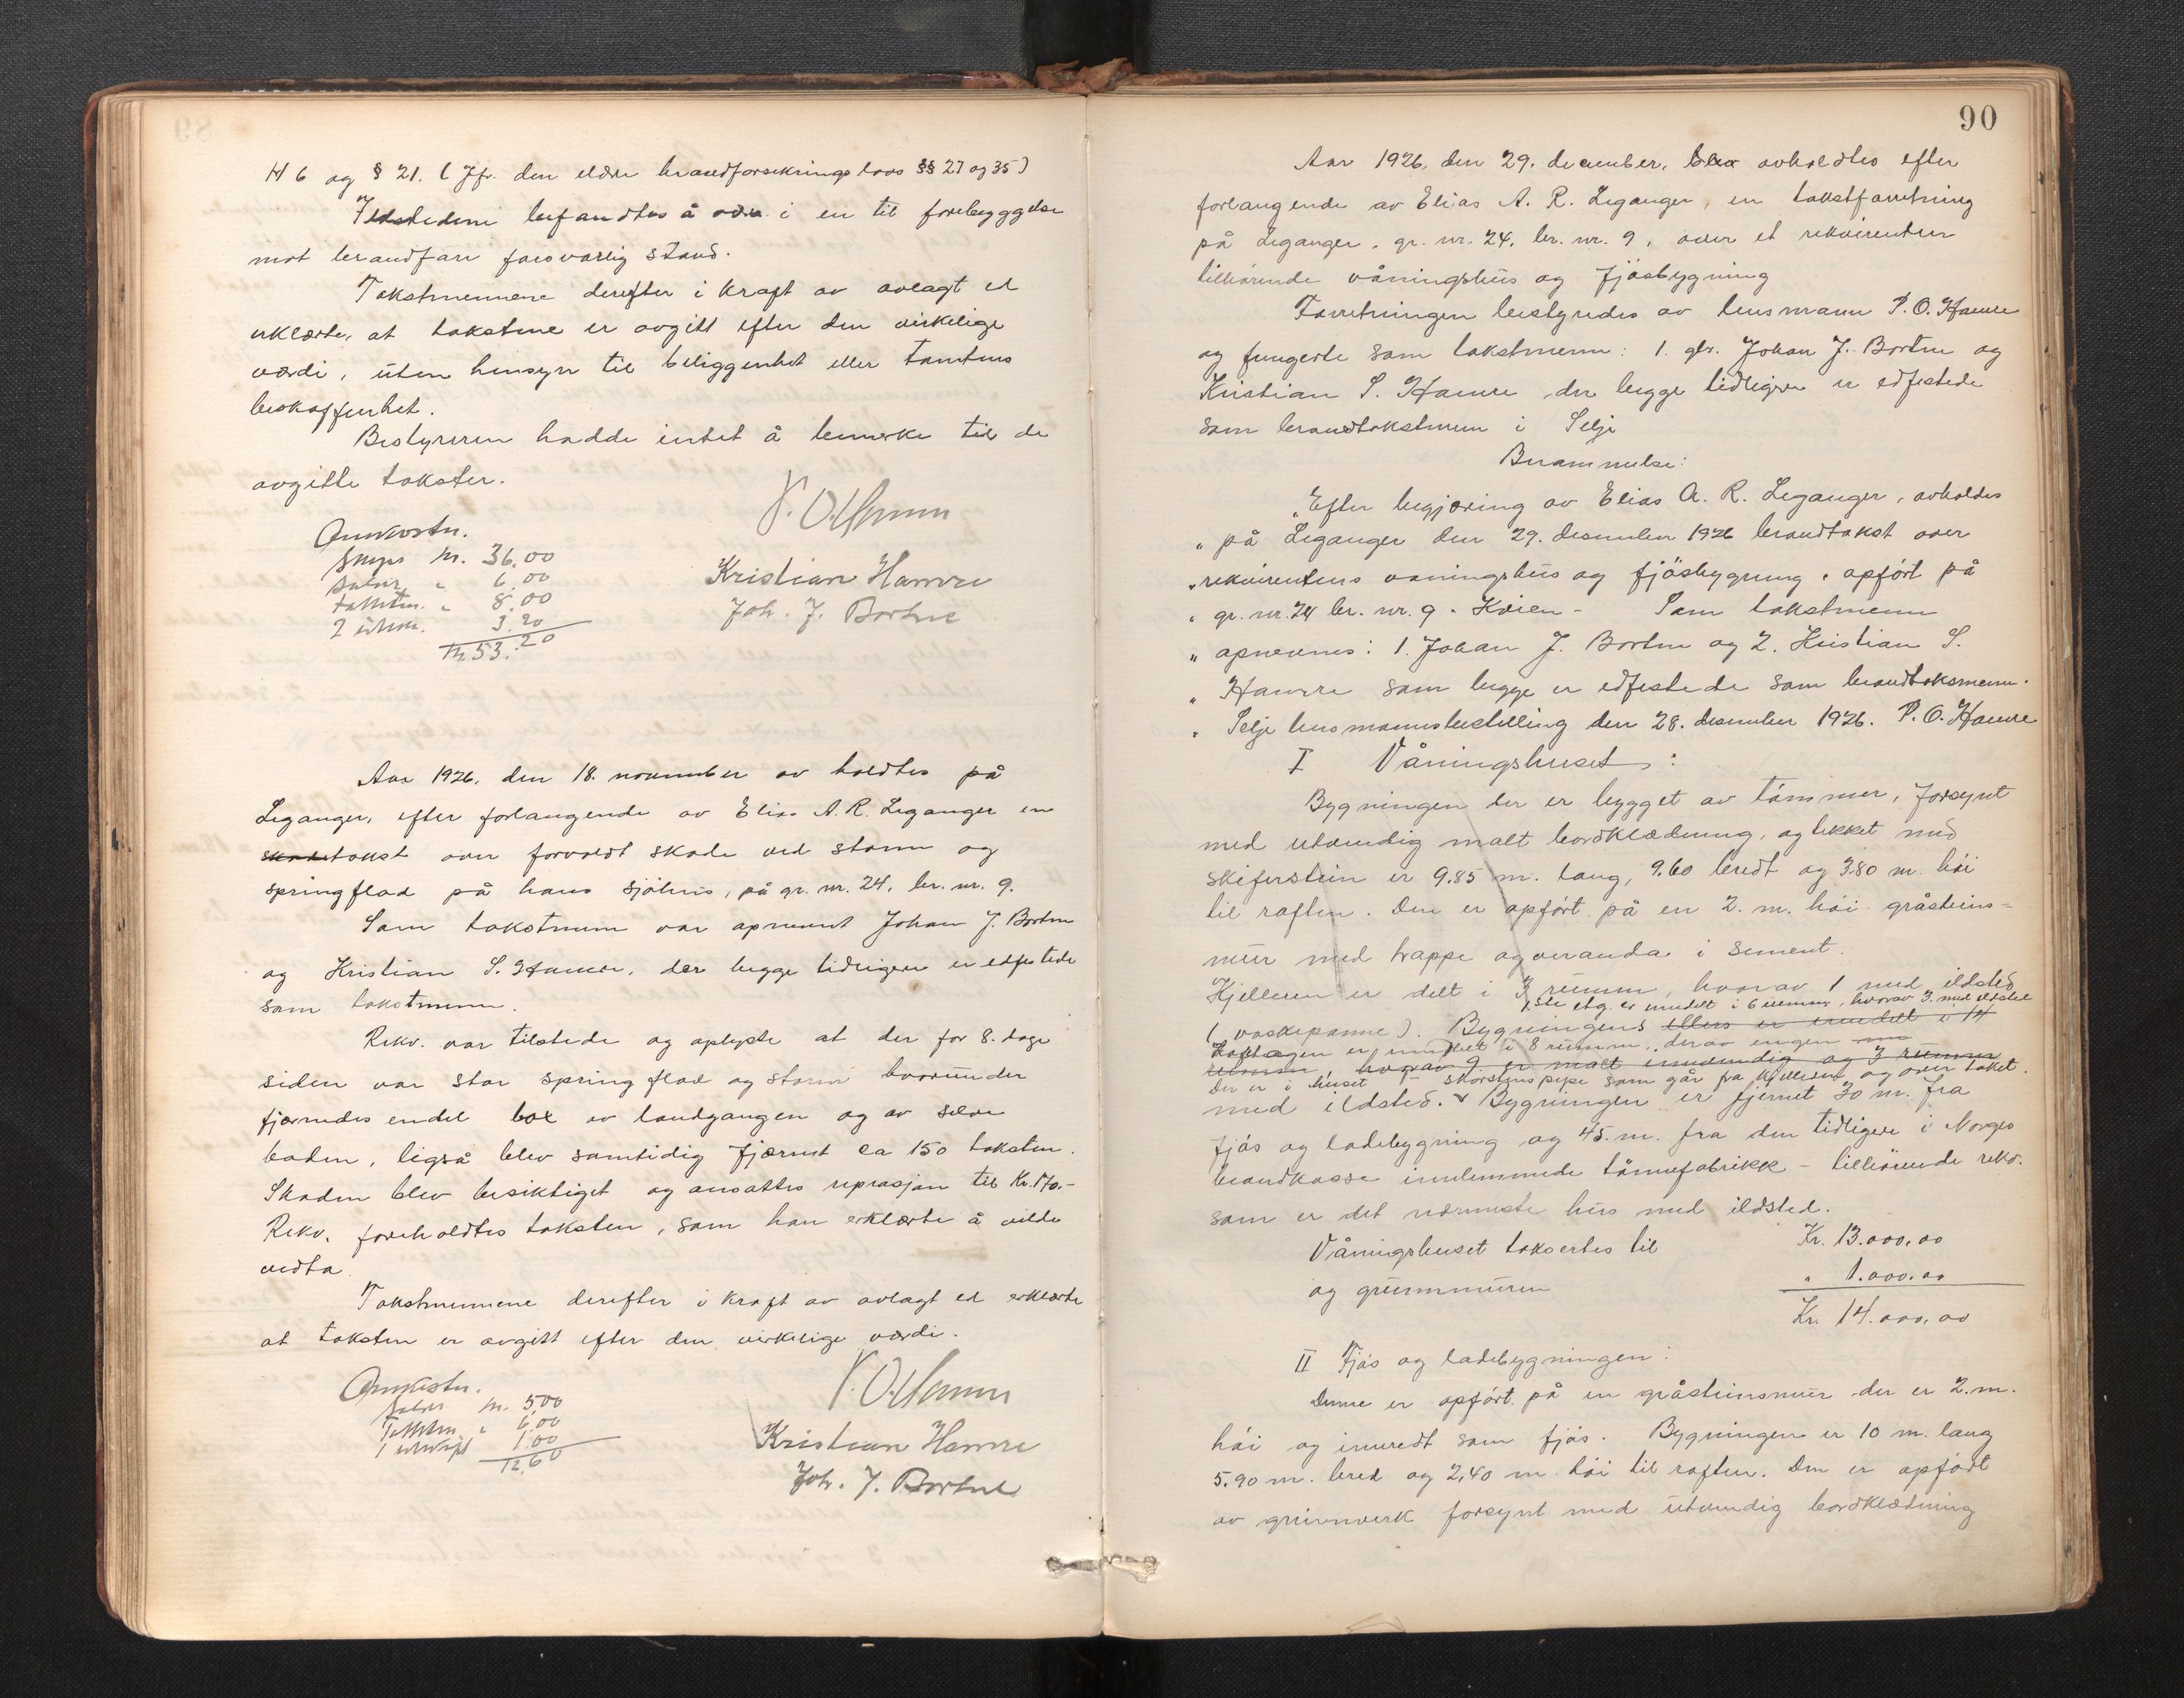 H 6 og § 21. (Jfr. den eldre brandforsikringslovs §§ 27 og 35)
Ildstedene befandtes å være i en til forebyggelse
mot brandfare forsvarlig stand.
Takstmennene derefter i kraft av avlagt ed
erklærte, at takstene er avgitt efter den virkelige
værdi, uten hensyn til beliggenhet eller tomtens
beskaffenhet.
Bestyreren hadde intet å bemerke til de
avgitte takster.
P. O. Hamre
Omkostn.
Skyss kr. 36,00
Salær " 6,00
takstm. " 8,00
2 utskr. 3,20
Kr. 53.20
Kristian Hamre
Joh. J. Bortne
Aar 1926, den 18. november avholdtes på
Leganger, efter forlangende av Elias A. R. Leganger en
skadetakst over forvoldt skade ved storm og
springflod på hans sjöhus, på gr. nr. 24, br. nr. 9.
Som takstmenn var opnevnt Johan J. Bortne
og Kristian S. Hamre, der begge tidligere er edfestede
som takstmenn.
Rekv. var tilstede og oplyste at der for 8. dage
siden var stor springflod og storm hvorunder
fjernedes endel bol av landgangen og av selve
boden, ligså blev samtidig fjernet ca 150 taksten.
Skaden blev besiktiget og ansattes reprasjon til Kr. 170.-
Rekv. foreholdtes taksten, som han erklærte å ville
vedta
Takstmennene derefter i kraft av avlagt ed erklærte
at taksten er avgitt efter den virkelige værdi.
P. O. Hamre
Omkostn.
Salær kr. 5,00
Takstm. " 6,00
1 utskrift 1.00
12,60
Kristian Hamre
Joh. J. Bortne
90
Aar 1926, den 29. december, blev avholdtes efter
forlangende av Elias A. R. Leganger, en takstforretning
på Leganger, gr. nr. 24, br. nr. 9, over et rekvirenten
tilhörende våningshus og fjösbygning
Forretningen bestyredes av lensmann P. O. Hamre
og fungerte som takstmenn: 1. gbr. Johan J. Bortne og
Kristian S. Hamre der begge tidligere er edfestede
som brandtakstmenn i Selje
Berammelse:
"Efter begjæring av Elias A. R. Leganger, avholdes
" på Leganger den 29. desember 1926 brandtakst over
" rekvirentens våningshus og fjösbygning, opfört på
" gr. nr. 24 br. nr. 9. Kvien - Som takstmenn
" opnevnes: 1. Johan J. Bortne og 2. Kristian S.
" Hamre som begge er edfestede som brandtaksmenn.
" Selje lensmannsbestilling den 28. desember 1926. P. O. Hamre
I Våningshuset:
Bygningen der er bygget av tömmer, forsynt
med utvendig malt bordklædning, og tekket med
skiferstein er 9.85 m. lang, 9.60 bredt og 3.80 m. höi
til raften. Den er opfört på en 2. m. höi gråsteins-
mur med trappe og veranda i sement.
Kjelleren er delt i 3 rumm, hvorav 1 med ildsted
1ste etg. er inndelt i 6 rumm, hvorav 3 med ildsted
(vaskepanne). Bygningens ellers er inndelt i 14
Loftetagen er inndelt i 8 rumm, derav ingen
rumm, hvorav 9 er malt innvendig og 3 rumm
Der er i huset 1 skorstenspipe som går fra kjelleren og over taket.
med ildsted. Bygningen er fjernet 30 m. fra
fjös og ladebygning og 45. m. fra den tidligere i Norges
brandkasse innlemmede tönnefabrikk - tilhörende rekv.
som er det nærmeste hus med ildsted.
Våningshuset takseres til Kr. 13.000,00
og grunnmuren " 1.000.00
Kr. 14.000,00
II Fjös og ladebygningen:
Denne er opfört på en gråsteinsmur der er 2. m.
höi og innredt som fjös. Bygningen er 10 m. lang
5.90 m. bred og 2,40 m höi til raften. Den er opfört
av grinnverk forsynt med utvendig bordklædning